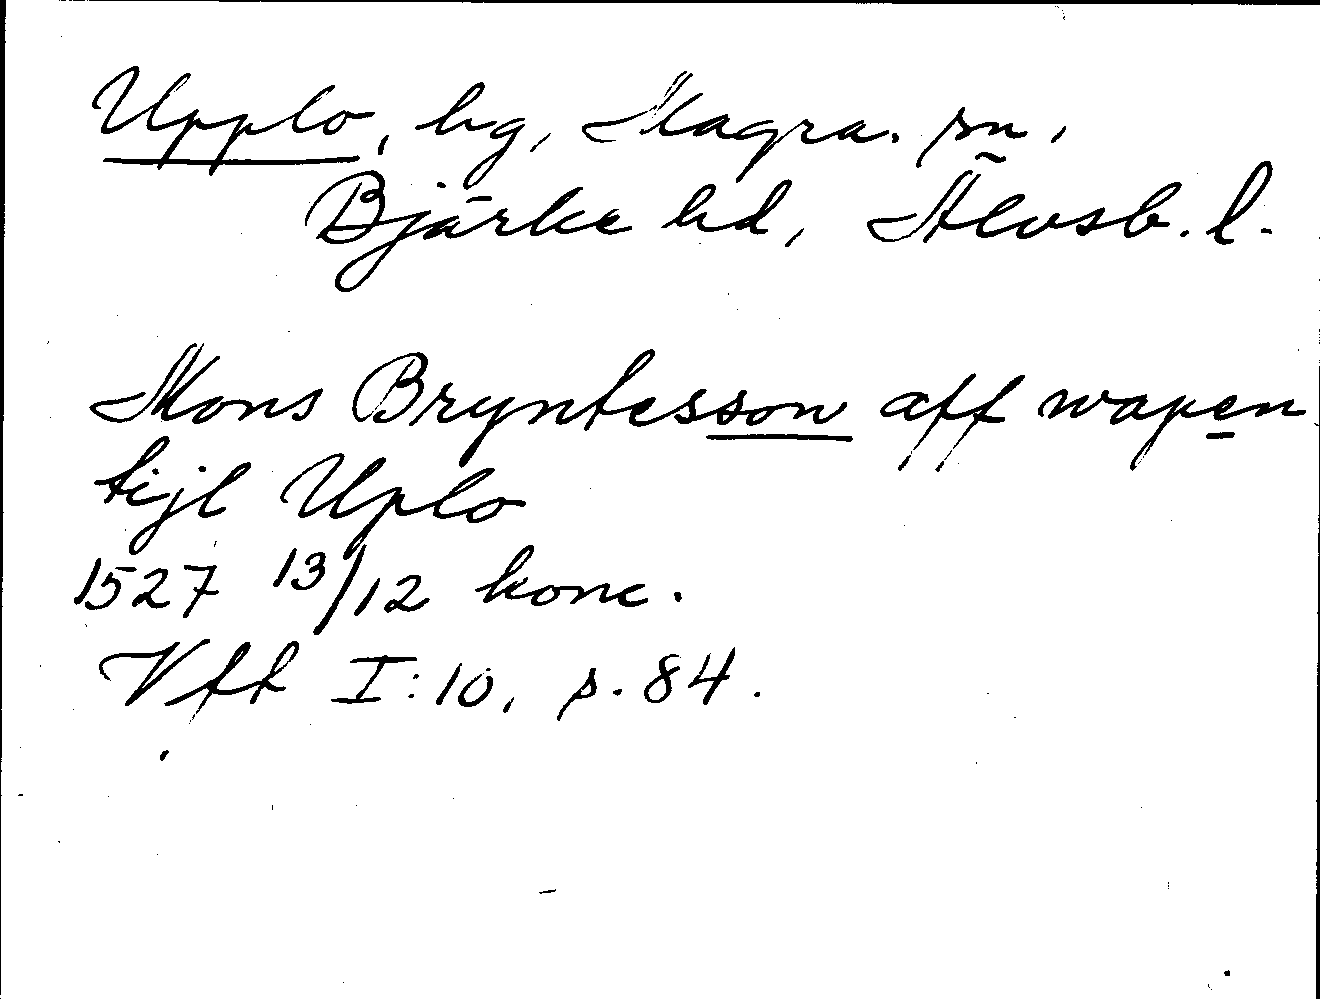 Upplo, hg, Magra. sn,
Bjärke hd, Älvsb. l.
Mons Bryntesson aff wapen
tijl Uplo
1527 13/12 konc.
Vff I:10, s. 84.